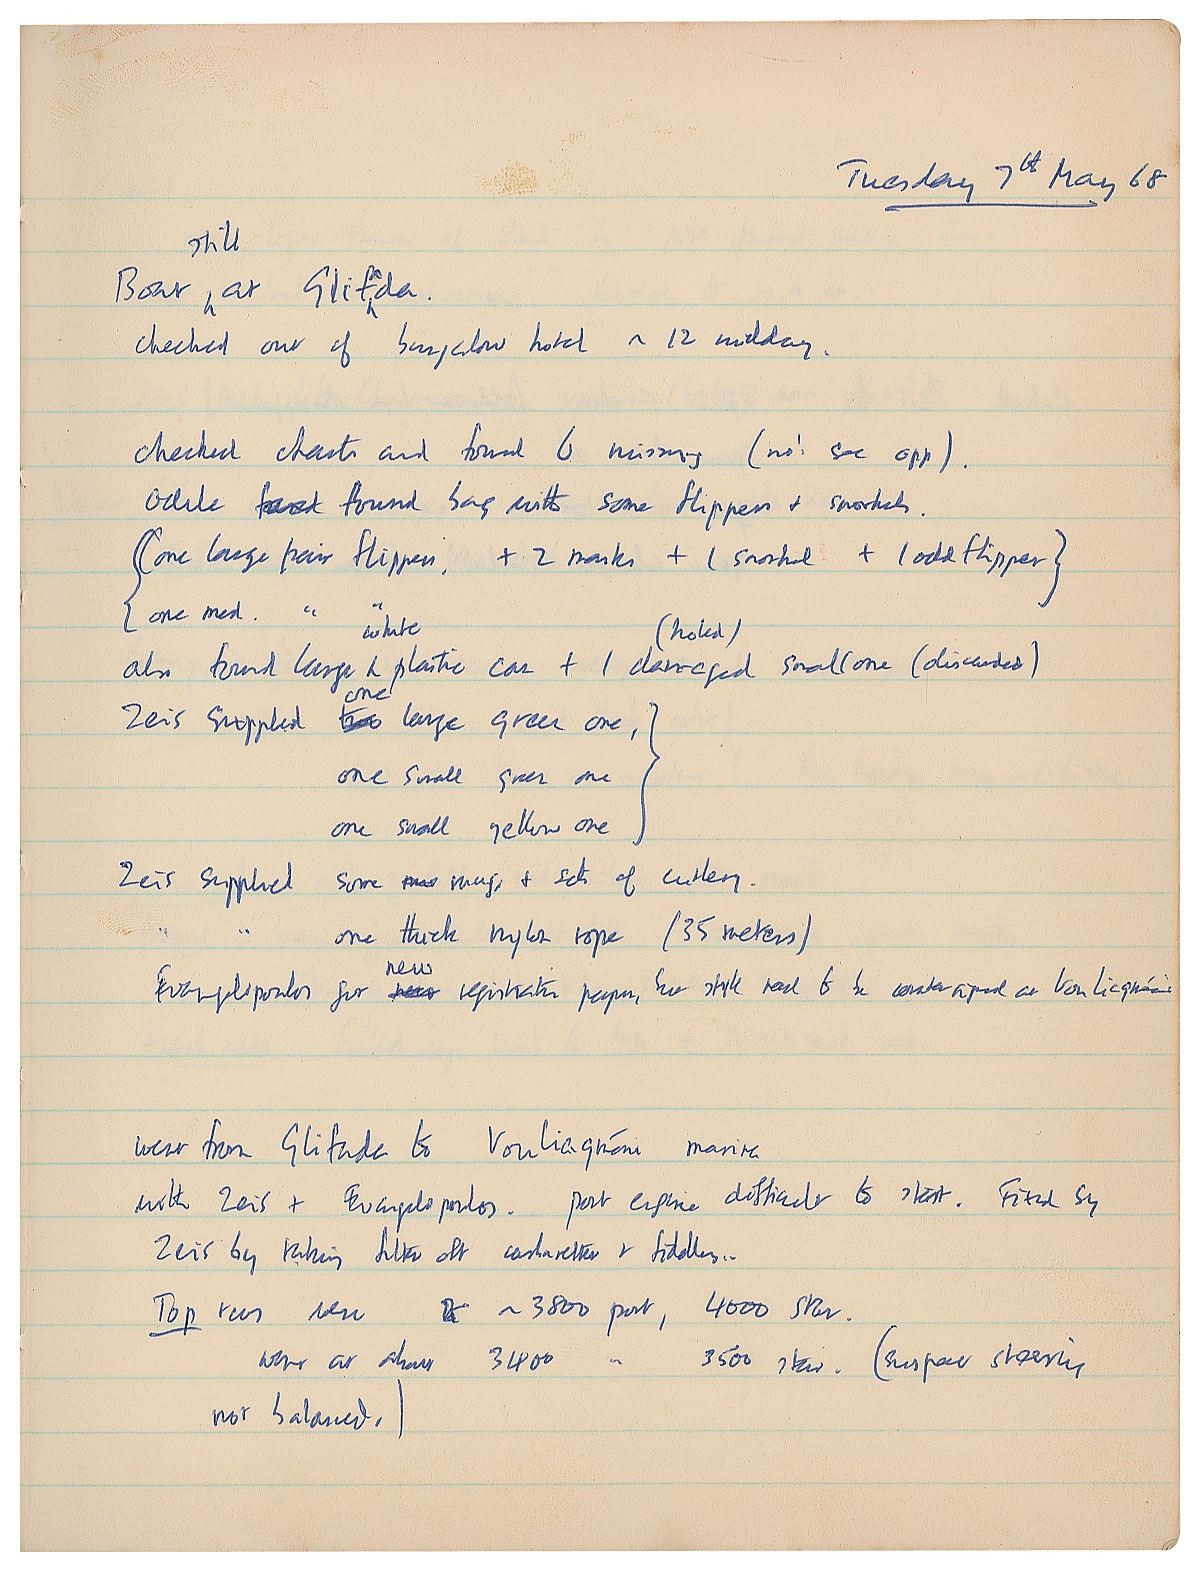 Tuesday 7th May 68
still
Boat at Glifada.
checked out of bungalow hotel ~ 12 midday.
checked charts and found 6 missing (no: see opp).
Odile found bag with some flippers + snorkels.
(one large pair flippers, + 2 masks + 1 snorkel + 1 odd flipper
one med. " "
white (holed)
also found large plastic can + 1 damaged small one (discarded)
one
Zeis supplied two large green one,
one small green one
one small yellow one
Zeis supplied some mugs + sets of cutlery.
" " one thick nylon rope (35 meters)
new
Evangelopoulos got registration papers, but still need to be countersigned at Vouliagméni
went from Glifada to Vouliagméni marina
with Zeis + Evangelopoulos. port engine difficult to start. Fixed by
Zeis by taking filter off carburettor + fiddling..
Top revs were ~ 3800 port, 4000 star.
went at about 3400 " 3500 star. (suspect steering
not balanced.)